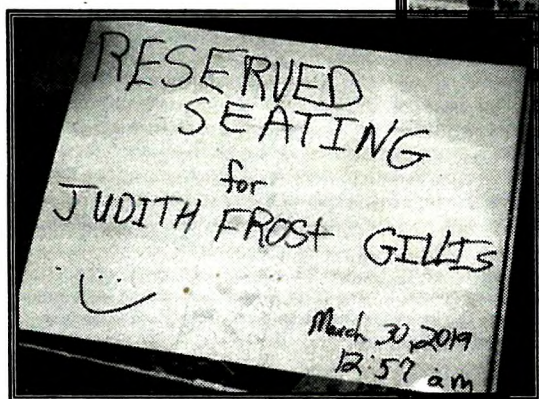 RESERVED
SEATING
for
JUDITH FROSt GILLIS
March 30, 2019
12:57 am